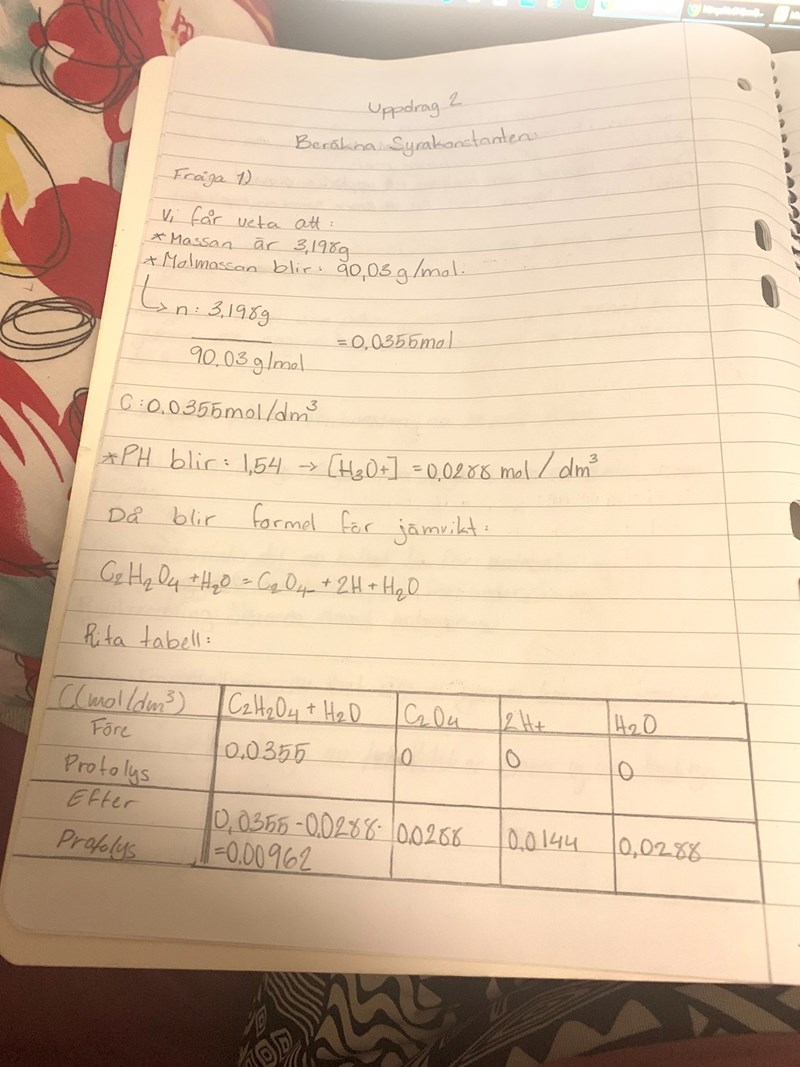 Uppdrag 2
Beräkna Syrakonstanten
Fråga 1)
Vi får veta att:
*Massan är 3,198g
*Molmassan blir: 90,03 g/mol.
↳ n: 3,198g
90,03 g/mol
=0,0355mol
C:0.0355mol/dm³
*PH blir: 1,54 → [H3O+] =0,0288 mol/dm³
Då blir formel för jämvikt:
C2H2O4 +H2O = C2O4- + 2H + H2O
Rita tabell:
C(mol/dm³) C2H2O4 + H2O C2O4 2H+ H2O
Före
Protolys 0,0355 0 0 0
Efter
Protolys 0,0355-0,0288- 0,0288 0,0144 0,0288
=0,00962